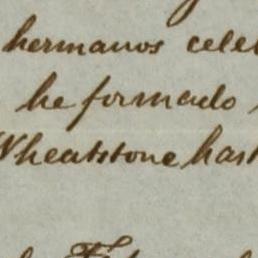 hermanos cele
he formado
Wheatstone hast